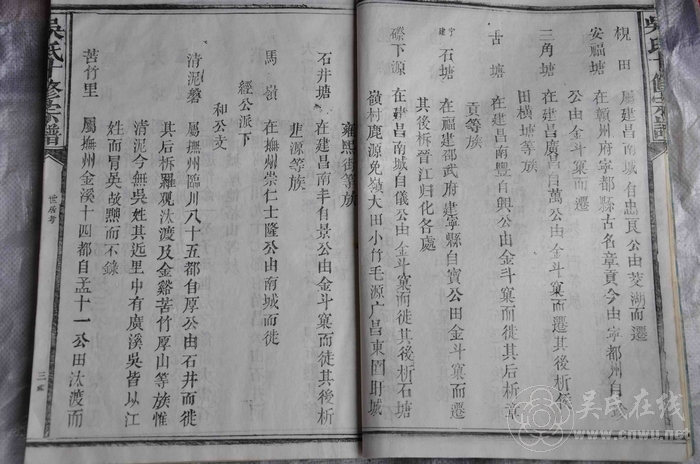 枧田　屬建昌南城自忠良公由茭湖而遷
安福塘　在贛州府寧都縣古名章貢今由寧都州自
公由金斗窠而遷
三角塘　在建昌廣昌自萬公由金斗窠而遷其後析
田橫塘等族
古塘　在建昌南豐自興公由金斗窠而徙其后析章
貢等族
建宁石塘　在福建邵武府建寧縣自賓公田金斗窠而遷
其後柝晉江归化各處
磜下源　在建昌南城自儀公由金斗窠而徙其後析石塘
嶺村鹿源免嶺大田小竹毛源广昌東图盱城
雍熙街等族
石井塘　在建昌南丰自景公由金斗窠而徙其後析
源等族
馬嶺　在撫州崇仁士隆公由南城而徙
經公派下
和公支
清泥磐　屬撫州臨川八十五都自厚公由石井而徙
其后柝羅观汰渡及金谿苦竹厚山等族惟
清泥今無吳姓其近里中有廣溪吳皆从江
姓而冒吳故
而不錄
苦竹里　屬撫州金溪十四都自孟十一公田汰渡而
世居考
吳氏
修宗譜
吴氏在线
www.cnwu.net